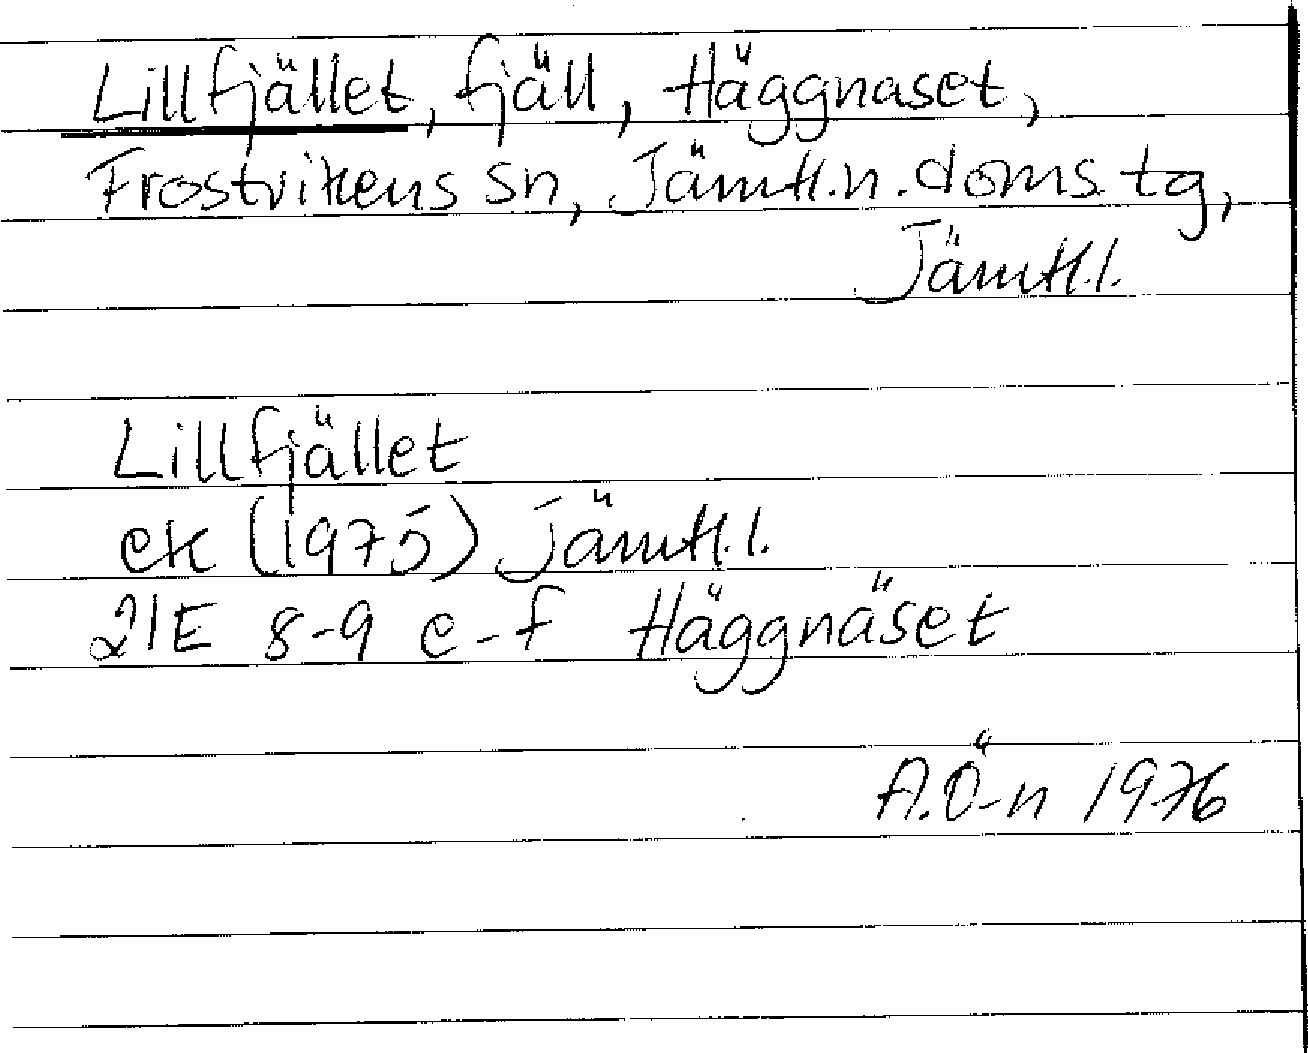 Lillfjället, fjäll, Häggnaset,
Frostvikens sn, Jämtl.n.doms.tg,
Jämtl.l.
Lillfjället
ek (1975) Jämtl.l.
21E 8-9 e-f Häggnäset
A.Ö-n 1976